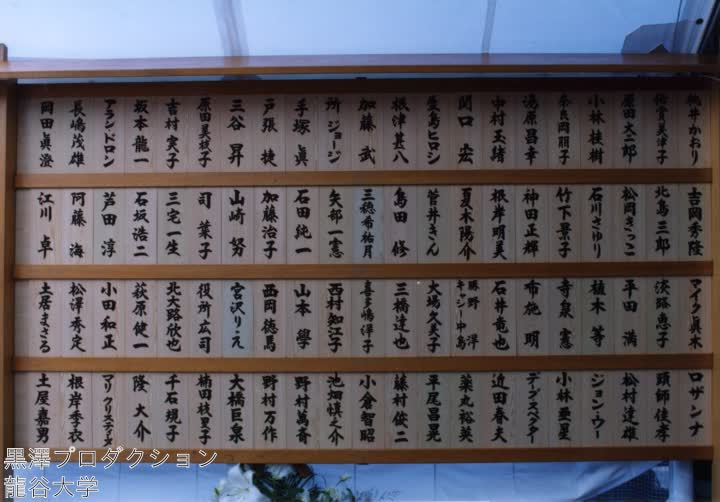 桃井かおり
佐賀美津子
原田大二郎
小林桂樹
奈良岡朋子
滝原昌幸
中村玉緒
関口宏
豊島ヒロシ
根津甚八
加藤武
所ジョージ
手塚眞
戸張捷
三谷昇
原田美枝子
吉村実子
坂本龍一
アラン・ドロン
長嶋茂雄
岡田眞澄
吉岡秀隆
北島三郎
松岡きっこ
石川さゆり
竹下景子
神田正輝
根岸明美
夏木陽介
菅井きん
島田修
三穂希祐月
矢部一憲
石田純一
加藤治子
山崎努
司葉子
三宅一生
石坂浩二
芦田淳
阿藤海
江川卓
マイク眞木
淡路恵子
平田満
植木等
寺泉憲
布施明
石井竜也
勝野洋
キャシー中島
大場久美子
三橋達也
喜多嶋洋子
西村知江子
山本學
西岡徳馬
宮沢りえ
役所広司
北大路欣也
萩原健一
小田和正
松澤秀定
土居まさる
ロザンナ
頭師佳孝
松村達雄
ジョン・ウー
小林亜星
デーブスペクター
近田春夫
薬丸裕英
平尾昌晃
藤村俊二
小倉智昭
池畑慎之介
野村萬斎
野村万作
大橋巨泉
楠田枝里子
千石規子
隆大介
マリクリスティーヌ
根岸季衣
土屋嘉男
黒澤プロダクション
龍谷大学